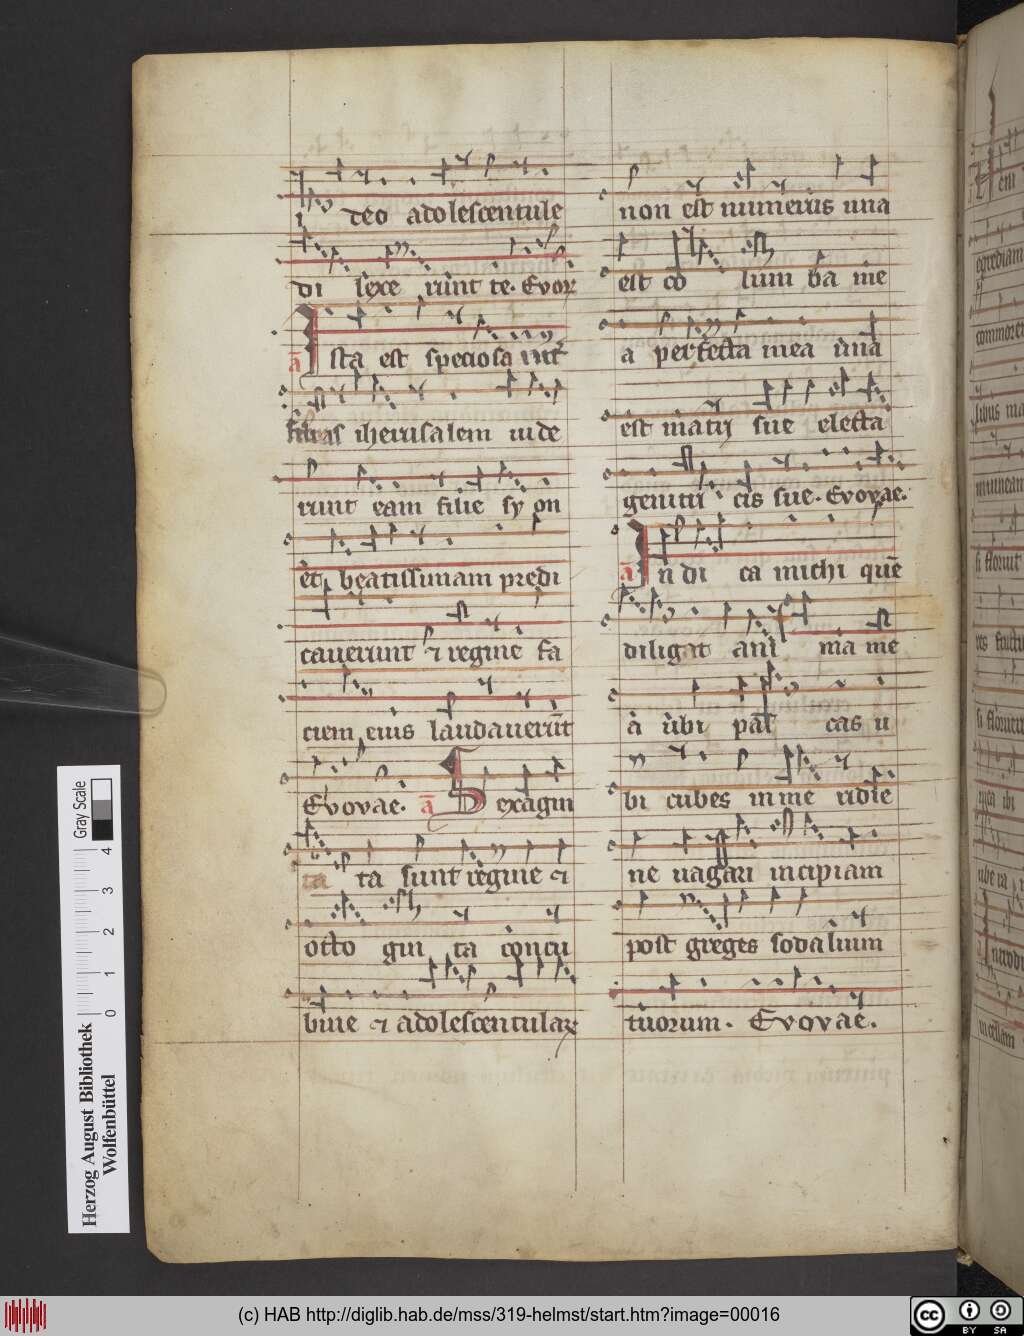 i deo adolescentule
di lexe runt te. Evov
a Ista est speciosa int̄
filias iherusalem uide
runt eam filie sy on
et beatissimam predi
cauerunt et regine fa
ciem eius laudauerūt
Evovae. a Sexagin
ta ta sunt regine et
octo gin ta concu
bine et adolescentulaꝝ
non est numerus una
est co lum ba me
a perfecta mea una
est matris sue electa
genitri cis sue. Evovae.
a In di ca michi quē
diligat ani ma me
a ubi pas cas u
bi cubes in me ridie
ne uagari incipiam
post greges sodalium
tuorum. Evovae.
egrediam
commorem
si floruit
si floruerunt
Introdu
in cellam
Herzog August Bibliothek
Wolfenbüttel
0 1 2 3 4
Gray Scale
(c) HAB http://diglib.hab.de/mss/319-helmst/start.htm?image=00016
cc BY SA